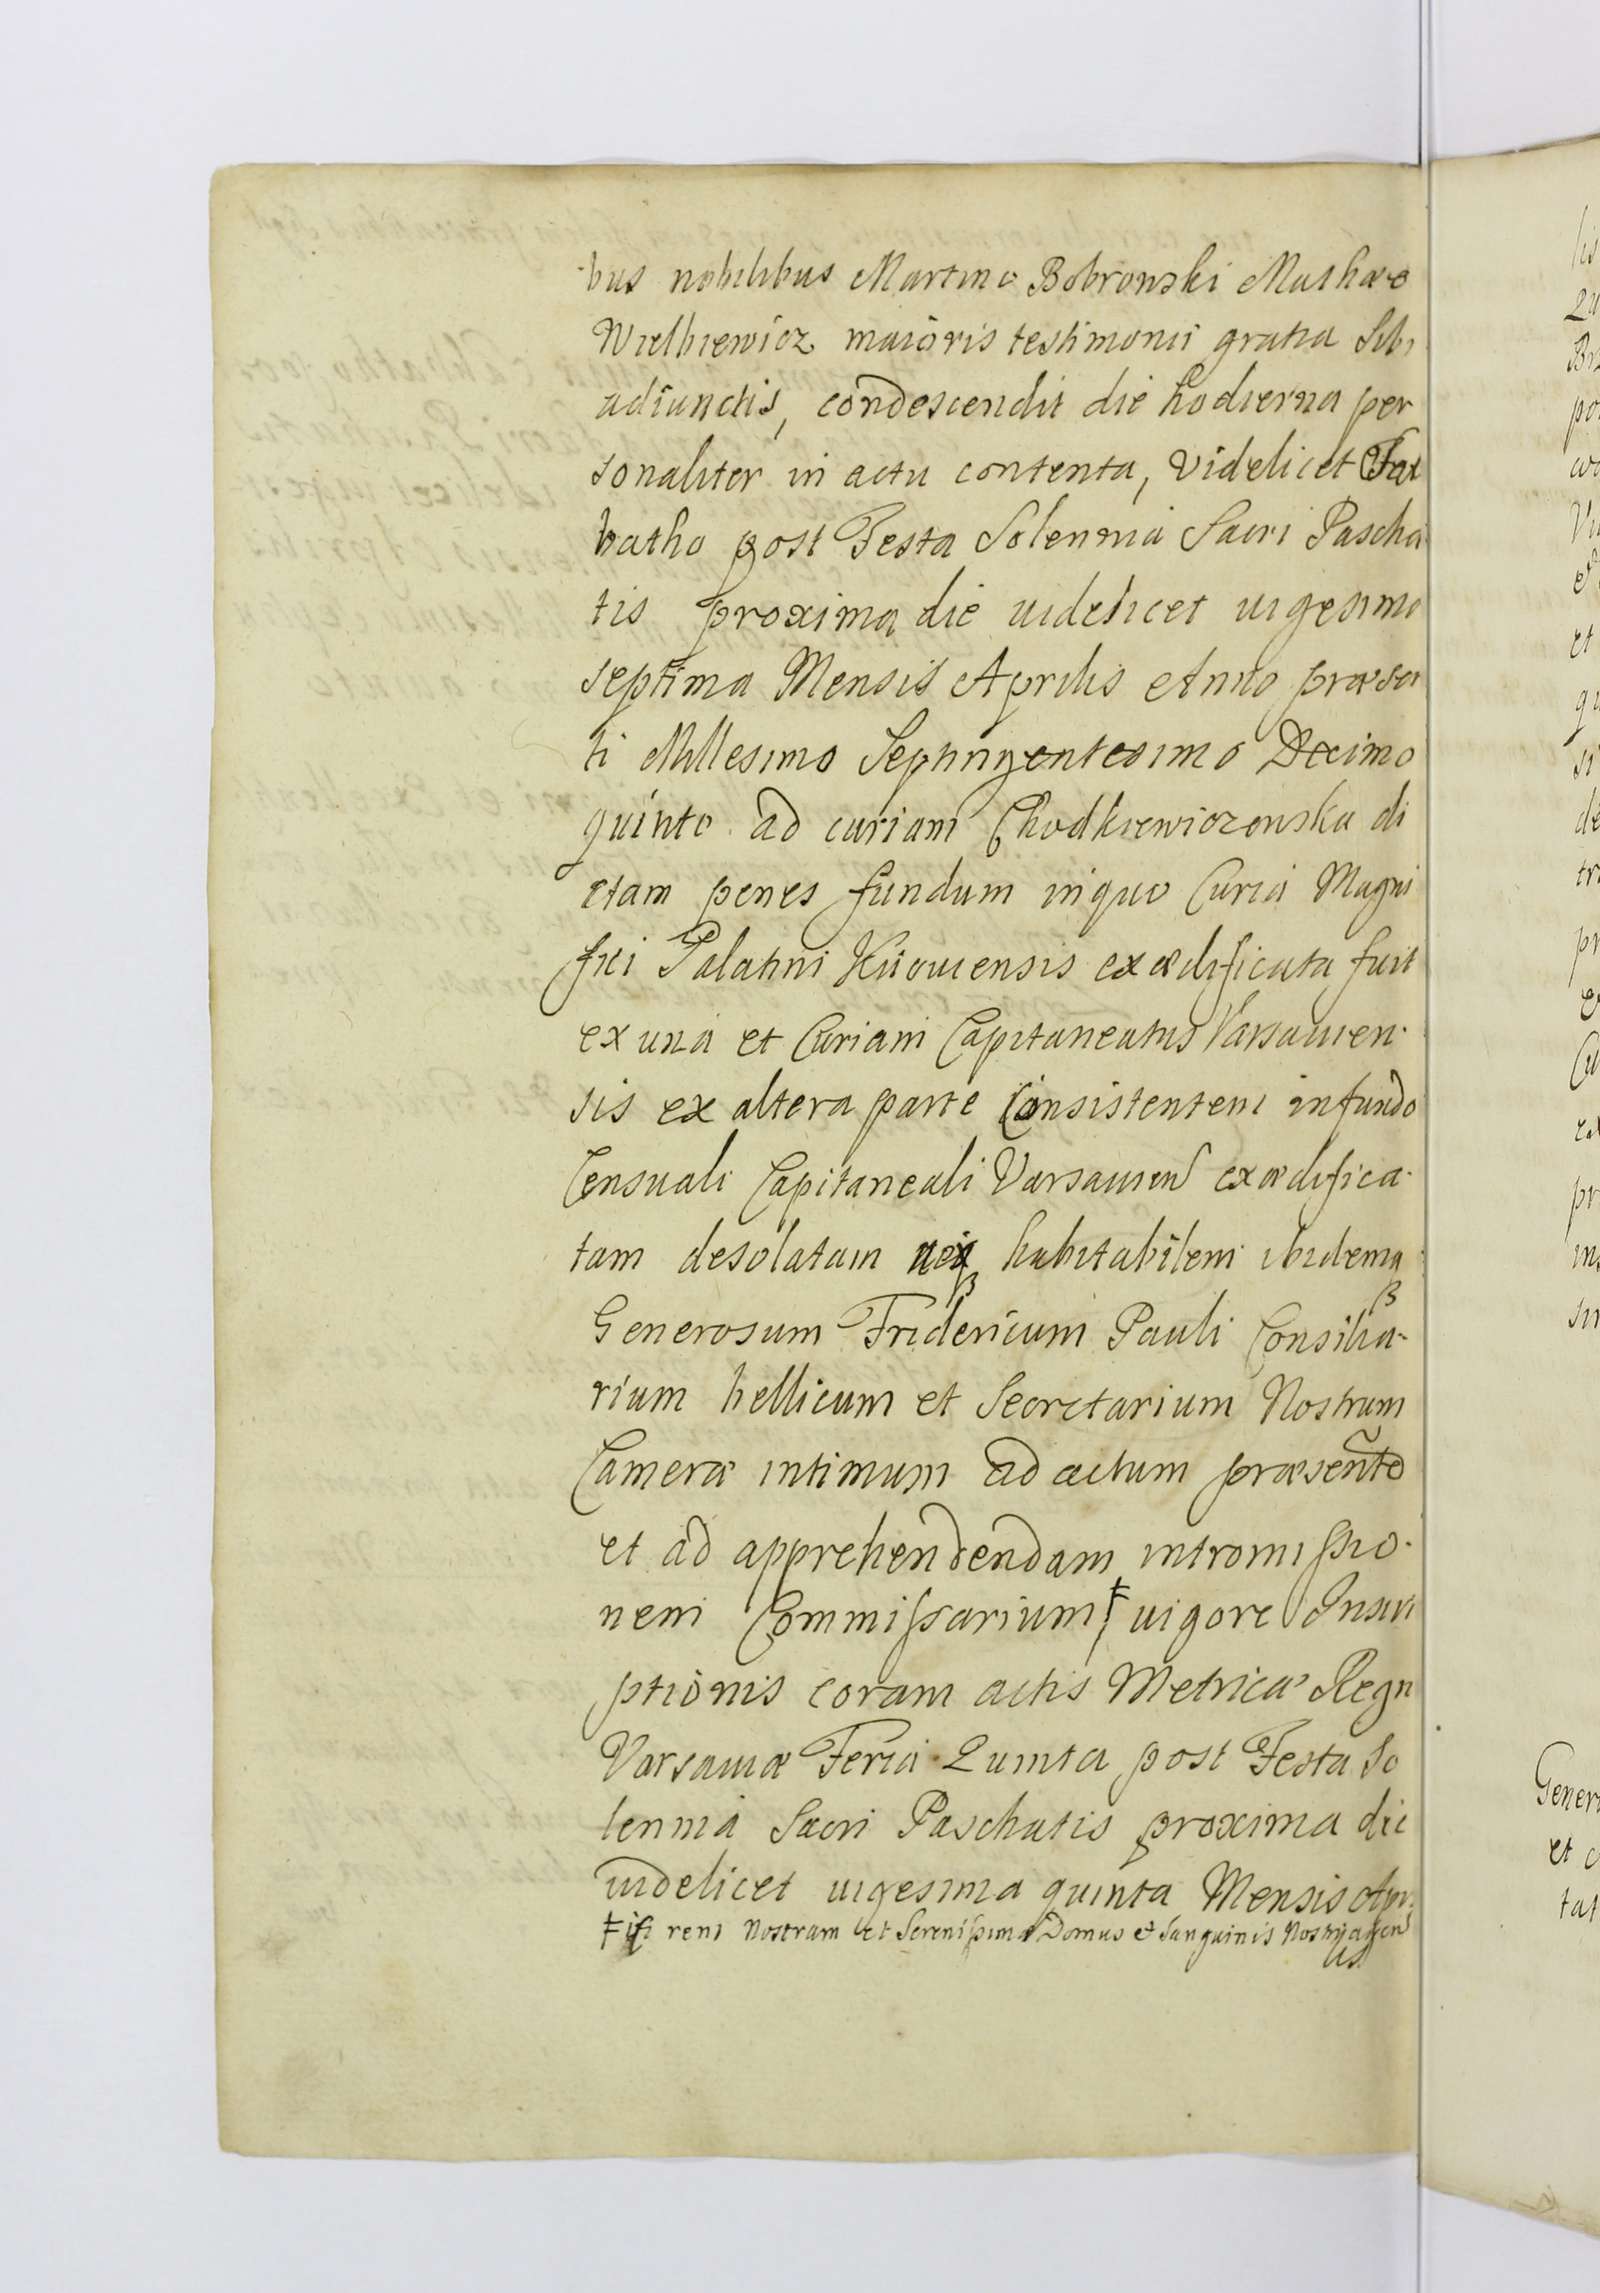 bus nobilibus Martino Bobronski Mathæo
Wielhiewicz maioris testimonii gratia Sibi
adiunctis, condescendit die hodierna per
sonaliter in actu contenta, videlicet Sab
batho post Festa Solennia Sacri Pascha
tis proxima die uidelicet uigesima
septima Mensis Aprilis Anno præsen
ti Millesimo Septingentesimo Decimo
quinto ad curiam Chodkiewiczonska di
ctam penes fundum in quo Curia Magni
fici Palatini Kiiouiensis exædificata fuit
ex una et Curiam Capitaneatus Varsauien
sis ex altera parte Consistentem in fundo
Censuali Capitaneali Varsauien exædifica
tam desolatam neq3 habitabilem ibidemq3
Generosum Fridericum Pauli Consilia-
rium bellicum et Secretarium Nostrum
Cameræ intimum ad actum præsente
et ad apprehendendam intromissio
nem Commissarium ǂ uigore Inscri
ptionis coram actis Metricæ Regn
Varsauiæ Feria Quinta post Festa So
lennia Sacri Paschatis proxima die
uidelicet uigesima quinta Mensis Apr
ǂ rem Nostram et Serenissima Domus et Sanguinis Nostri agen